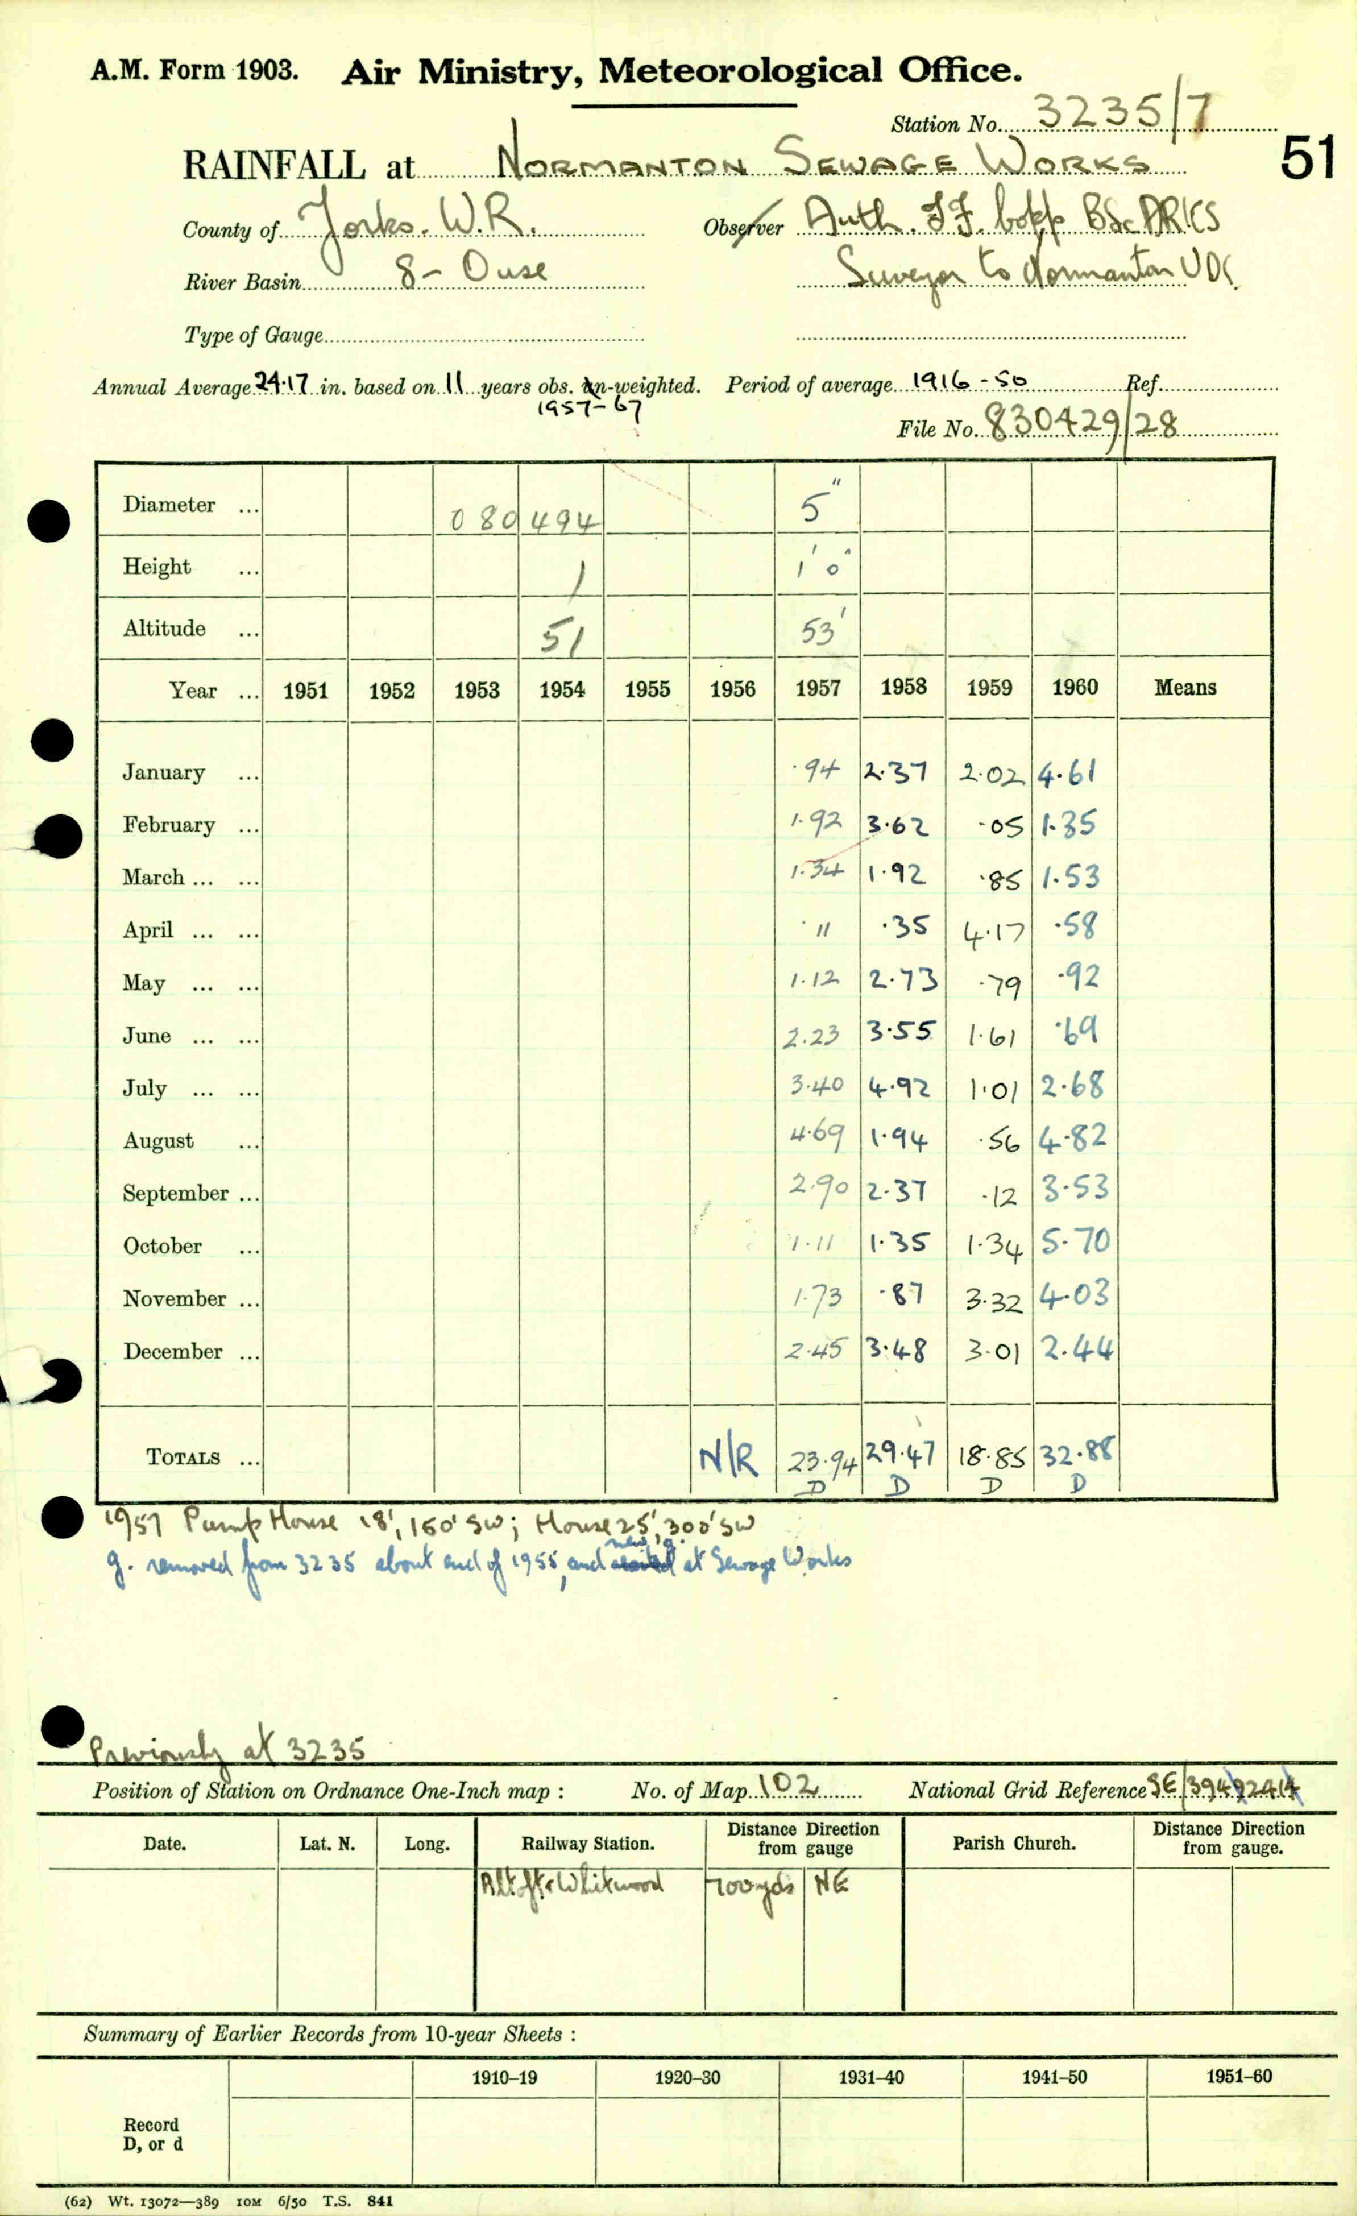 A.M. Form 1903. Air Ministry, Meteorological Office.
Station No. 3235/7
RAINFALL at NORMANTON SEWAGE WORKS 51
County of Yorks. W.R. Observer Auth. J.F. Copp BSc ARICS
River Basin 8 - Ouse Surveyor to Normanton UDC.
Type of Gauge
Annual Average 24.17 in. based on 11 years obs. un-weighted. Period of average 1916-50 Ref.
1957-67
File No. 830429/28
Diameter ... 080 494 5"
Height ... 1 1' 0"
Altitude ... 51 53'
Year ... 1951 1952 1953 1954 1955 1956 1957 1958 1959 1960 Means
January ... .94 2.37 2.02 4.61
February ... 1.92 3.62 .05 1.35
March ... ... 1.34 1.92 .85 1.53
April ... ... .11 .35 4.17 .58
May ... ... 1.12 2.73 .79 .92
June ... ... 2.23 3.55 1.61 .69
July ... ... 3.40 4.92 1.01 2.68
August ... 4.69 1.94 .56 4.82
September ... 2.90 2.37 .12 3.53
October ... 1.11 1.35 1.34 5.70
November ... 1.73 .87 3.32 4.03
December ... 2.45 3.48 3.01 2.44
TOTALS ... N/R 23.94 29.47 18.85 32.88
D D D D
1957 Pump House 18', 150' SW; House 25', 300' SW
g. removed from 3235 about end of 1955, and new g. at Sewage Works
Previously at 3235
Position of Station on Ordnance One-Inch map : No. of Map 102 National Grid Reference SE/39492414
Date. Lat. N. Long. Railway Station. Distance Direction from gauge Parish Church. Distance Direction from gauge.
Altofts & Whitwood 700 yds NE
Summary of Earlier Records from 10-year Sheets :
1910–19 1920–30 1931–40 1941–50 1951–60
Record
D, or d
(62) Wt. 13072—389 10M 6/50 T.S. 841